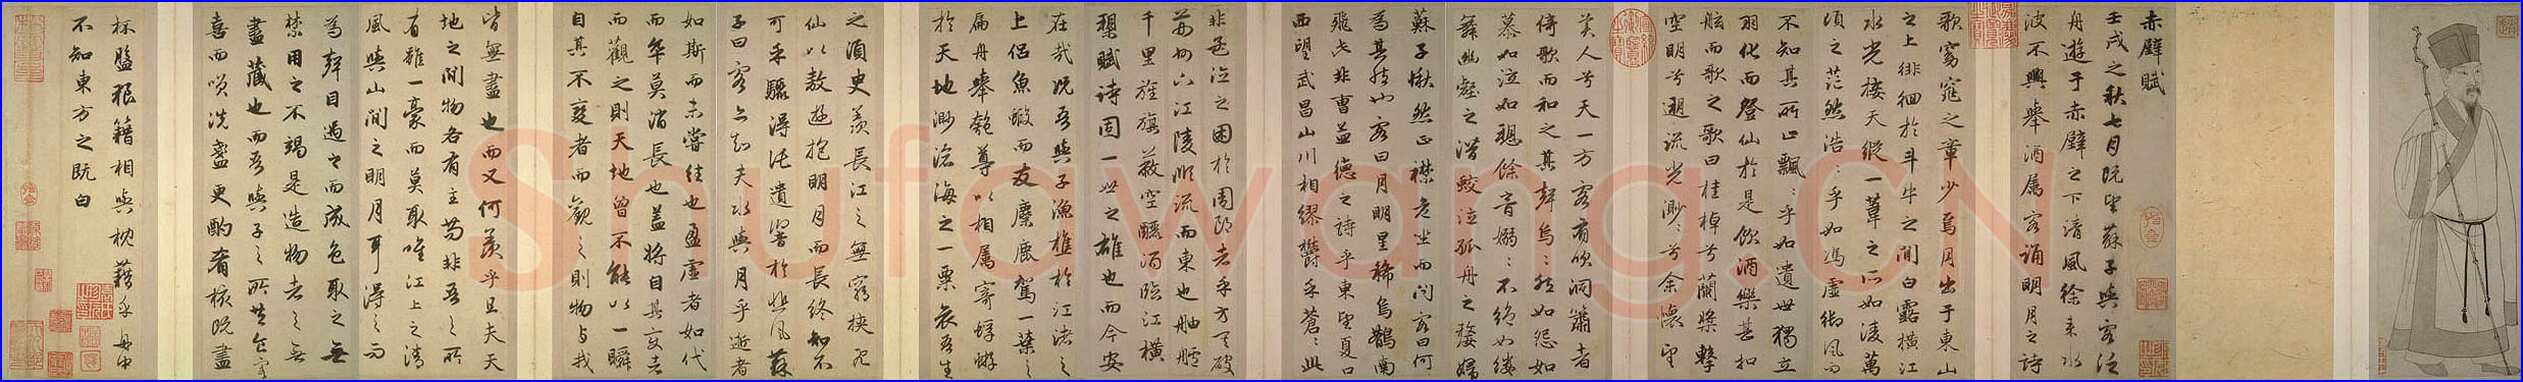 赤壁賦
壬戌之秋七月既望蘇子與客泛
舟遊于赤壁之下清風徐來水
波不興舉酒属客誦明月之詩
歌窈窕之章少焉月出于東山
之上徘徊於斗牛之間白露橫江
水光接天縱一葦之所如淩萬
頃之茫然浩〻乎如馮虛御風而
不知其所止飄〻乎如遺世獨立
羽化而登仙於是飲酒樂甚扣
舷而歌之歌曰桂棹兮蘭槳擊
空明兮遡流光渺〻兮余懷望
美人兮天一方客有吹洞簫者
倚歌而和之其聲嗚〻然如怨如
慕如泣如聴餘音嫋〻不絕如縷
舞幽壑之潛蛟泣孤舟之嫠婦
蘇子愀然正襟危坐而問客曰何
為其然也客曰月明星稀烏鵲南
飛此非曹孟德之詩乎東望夏口
西望武昌山川相繆欝乎蒼〻此
非孟德之困於周郎者乎方其破
荊州下江陵順流而東也舳艫
千里旌旗蔽空釃酒臨江橫
槊賦詩固一世之雄也而今安
在哉況吾與子漁樵於江渚之
上侶魚蝦而友麋鹿駕一葉之
扁舟舉匏尊以相属寄蜉蝣
於天地渺滄海之一粟哀吾生
之須臾羨長江之無窮挾飛
仙以敖遊抱明月而長終知不
可乎驟得託遺響於悲風蘇
子曰客亦知夫水與月乎逝者
如斯而未嘗往也盈虛者如代
而卒莫消長也蓋將自其變者
而觀之則天地曾不能以一瞬
自其不變者而觀之則物与我
皆無盡也而又何羨乎且夫天
地之間物各有主苟非吾之所
有雖一豪而莫取唯江上之清
風與山間之明月耳得之而
為聲目遇之而成色取之無
禁用之不竭是造物者之無
盡藏也而吾與子之所共食客
喜而咲洗盞更酌肴核既盡
杯盤狼籍相與枕藉乎舟中
不知東方之既白
Shufawang.CN